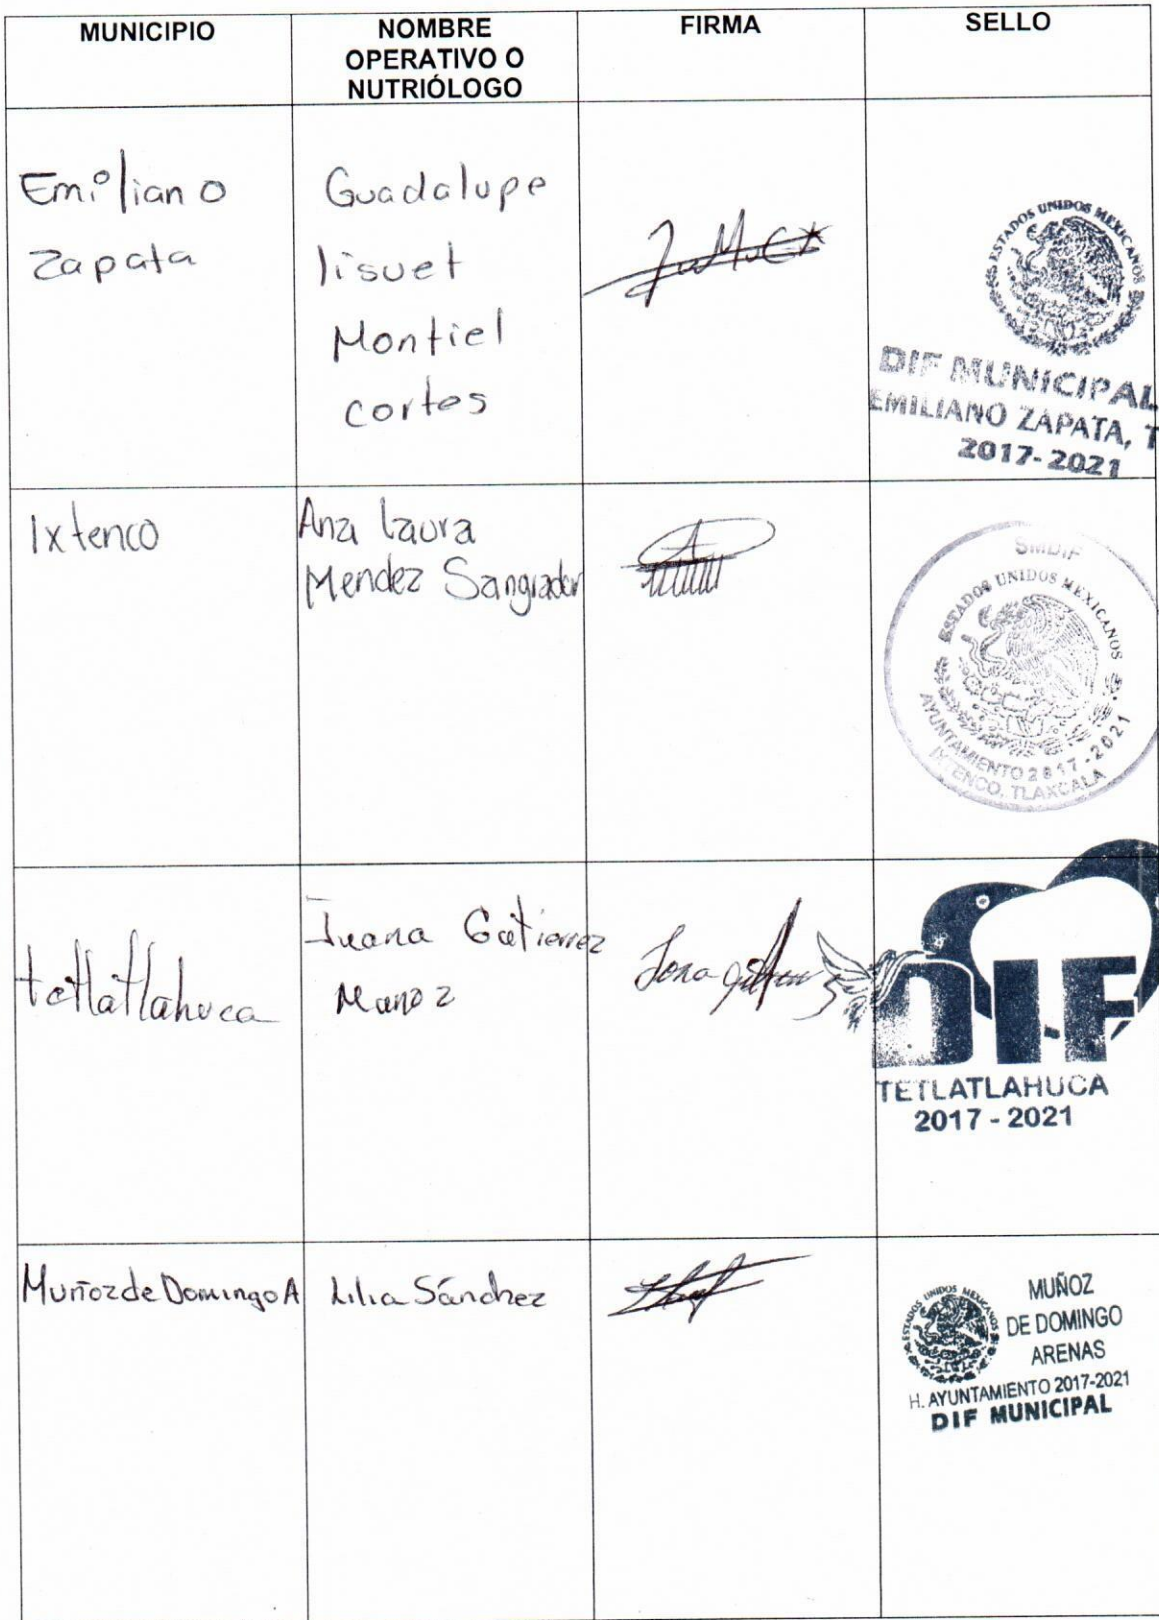 MUNICIPIO
NOMBRE
OPERATIVO O
NUTRIÓLOGO
FIRMA
SELLO
Emiliano
Zapata
Guadalupe
lisuet
Montiel
cortes
ESTADOS UNIDOS MEXICANOS
DIF MUNICIPAL
EMILIANO ZAPATA, T
2017-2021
Ixtenco
Ana laura
Mendez Sangrador
SMDIF
ESTADOS UNIDOS MEXICANOS
AYUNTAMIENTO 2017-2021
IXTENCO, TLAXCALA
tetlatlahuca
Juana Gutierrez
Munoz
DIF
TETLATLAHUCA
2017 - 2021
Muñoz de Domingo A
Lilia Sánchez
ESTADOS UNIDOS MEXICANOS
MUÑOZ
DE DOMINGO
ARENAS
H. AYUNTAMIENTO 2017-2021
DIF MUNICIPAL